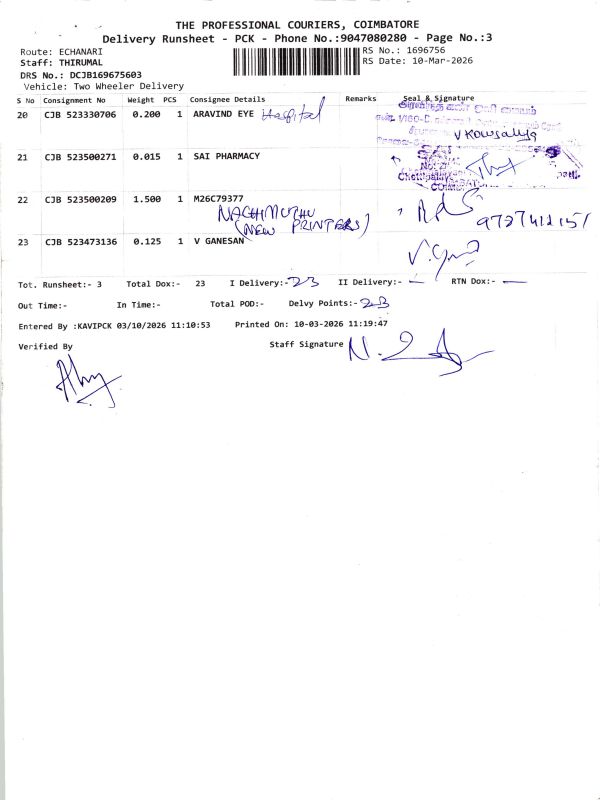 THE PROFESSIONAL COURIERS, COIMBATORE
Delivery Runsheet - PCK - Phone No.:9047080280 - Page No.:3
Route: ECHANARI RS No.: 1696756
Staff: THIRUMAL RS Date: 10-Mar-2026
DRS No.: DCJB169675603
Vehicle: Two Wheeler Delivery
S No Consignment No Weight PCS Consignee Details Remarks Seal & Signature
20 CJB 523330706 0.200 1 ARAVIND EYE Hospital
V Kowsalya
21 CJB 523500271 0.015 1 SAI PHARMACY
22 CJB 523500209 1.500 1 M26C79377
NACHIMUTHU
(NEW PRINTERS)
23 CJB 523473136 0.125 1 V GANESAN
Tot. Runsheet:- 3 Total Dox:- 23 I Delivery:- 23 II Delivery:- — RTN Dox:- —
Out Time:- In Time:- Total POD:- Delvy Points:- 23
Entered By :KAVIPCK 03/10/2026 11:10:53 Printed On: 10-03-2026 11:19:47
Verified By Staff Signature